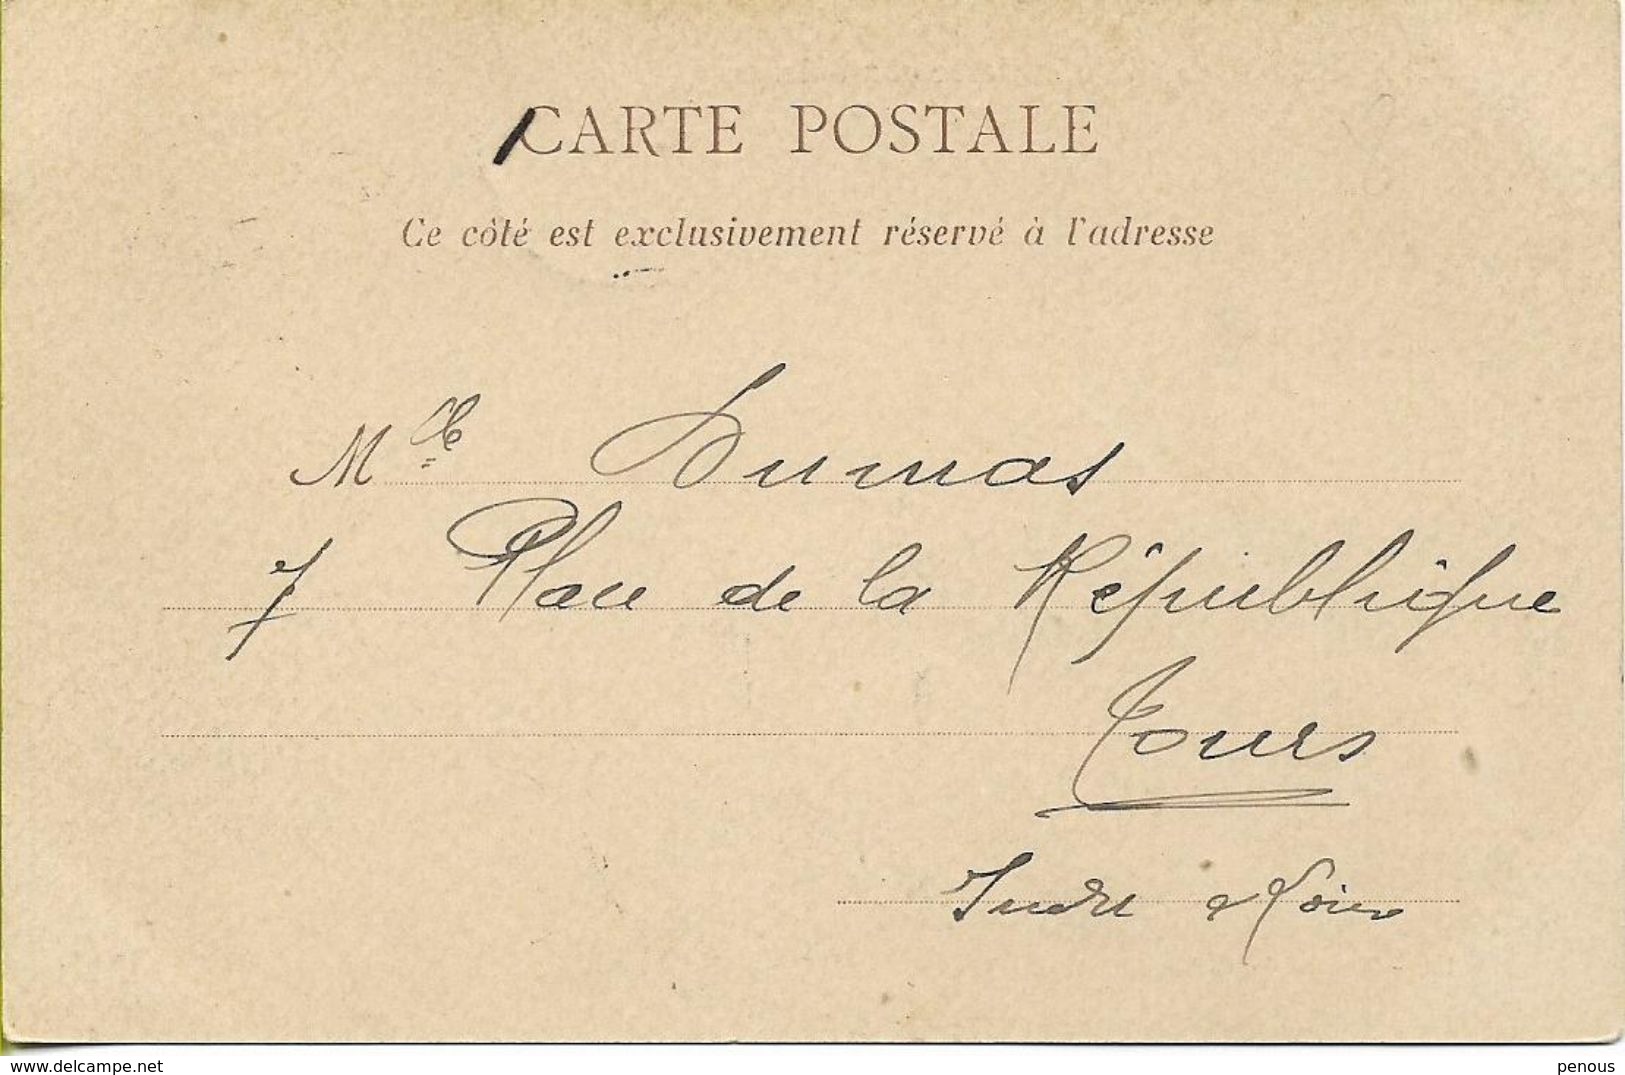 CARTE POSTALE
Ce côté est exclusivement réservé à l'adresse
Mlle Dumas
7 Place de la République
Tours
Indre & Loire
www.delcampe.net
penous